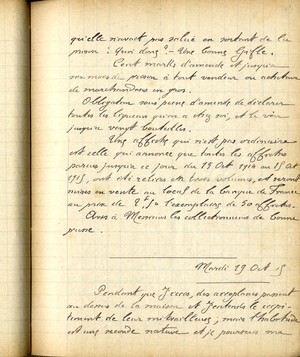 qu'elle n'avait pas salué en sortant de la
prison ! Quoi donc ? - Une bonne gifle.
Cent marks d'amende et jusque
mois de prison à tout vendeur ou acheteur
de marchandises en gros.
Obligation sous peine d'amende de déclarer
toutes les liqueurs qu'on a chez soi, et le vin
jusque vingt bouteilles.
Une affiche qui n'est pas ordinaire
est celle qui annonce que toutes les affiches
parues jusqu'ici ce jour du 13 Oct 1914 au 15 Oct
1915, ont été reliées en trois volumes, et seront
mises en vente au local de la banque de France
au prix de l'exemplaire de 50 affiches.
Avis à Messieurs les collectionneurs de bonne
Mardi 19 Oct 15
Pendant que j'écris, des aéroplanes passent
au dessus de la maison et j'entends le crépi-
tement de leurs mitrailleuses ; mais l'habitude
est une seconde nature et je poursuis ma